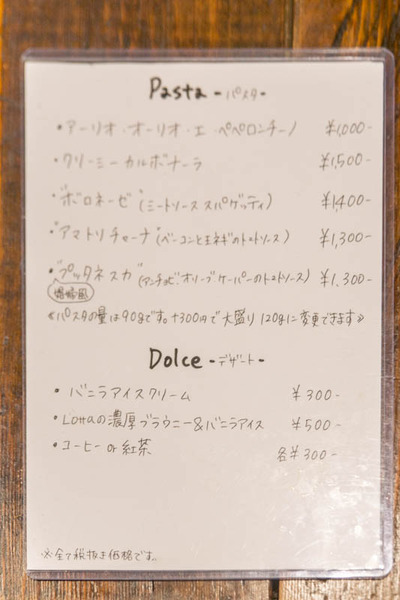 Pasta -パスタ-
・アーリオ・オーリオ・エ・ペペロンチーノ ¥1,000-
・クリーミーカルボナーラ ¥1,500-
・"ボロネーゼ"(ミートソーススパゲッティ) ¥1,400-
・"アマトリチャーナ"(ベーコンと玉ネギのトマトソース) ¥1,300-
・"プッタネスカ"(アンチョビ、オリーブ、ケーパーのトマトソース) ¥1,300-
娼婦風
《パスタの量は90gです。+300円で大盛り120gに変更できます》
Dolce -デザート-
・バニラアイスクリーム ¥300-
・Lottaの濃厚ブラウニー&バニラアイス ¥500-
・コーヒー or 紅茶 各¥300-
※全て税抜き価格です。